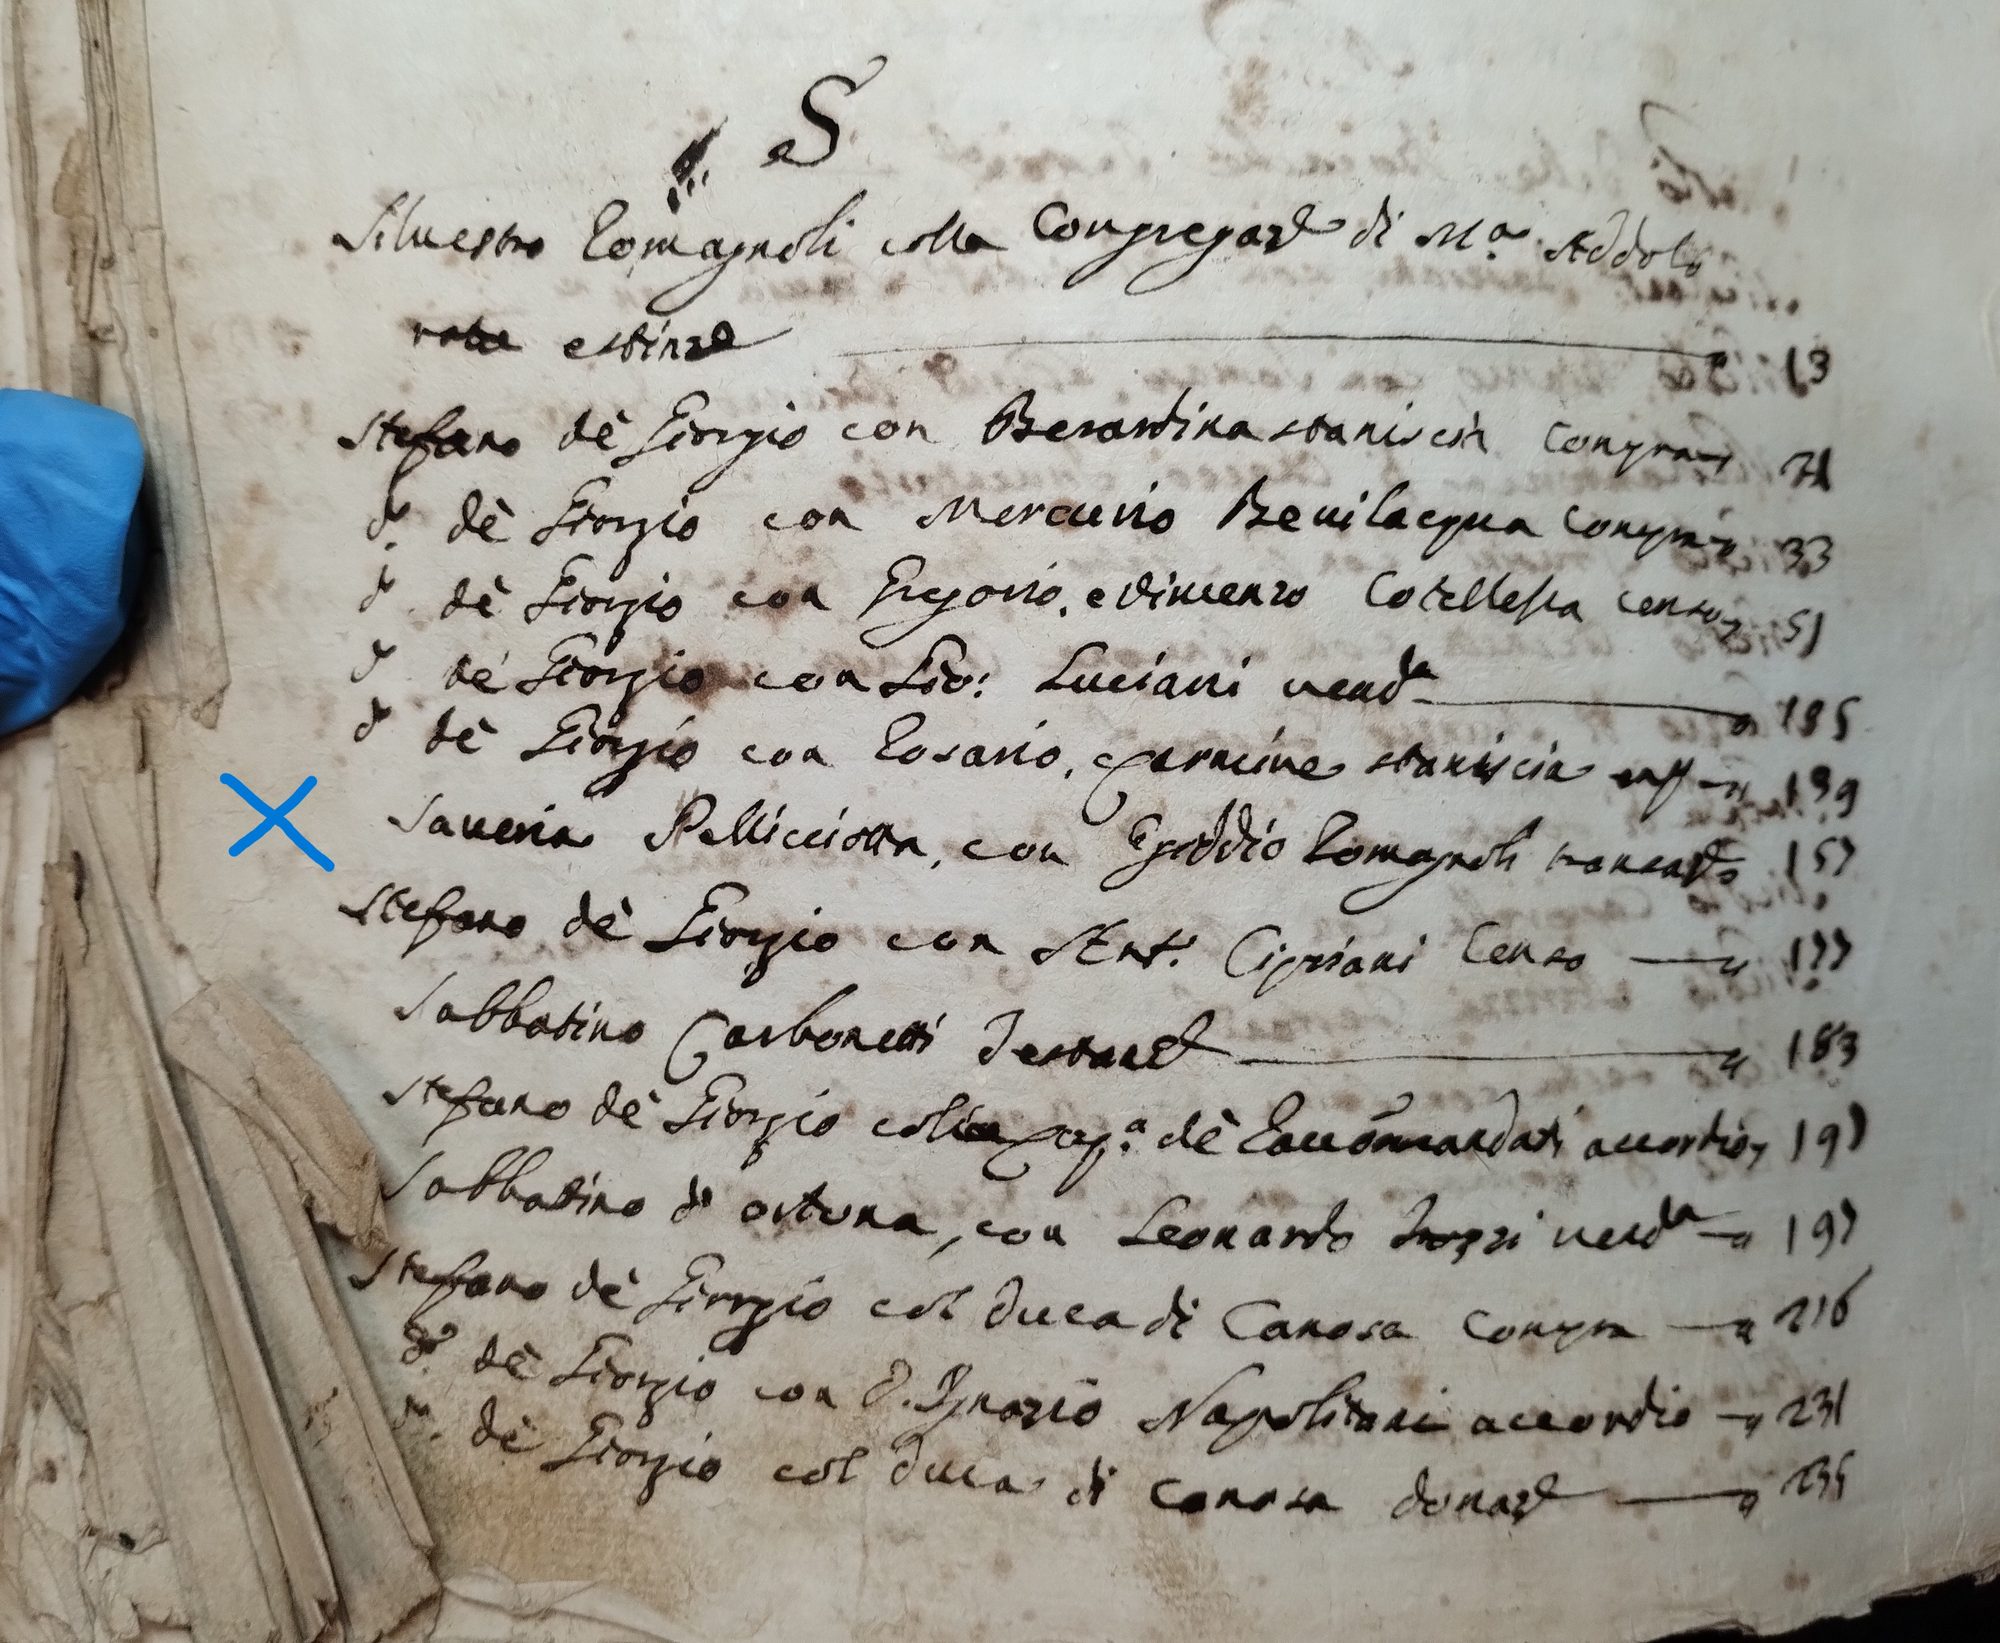 S
Siluestro Romagnoli colla Congregaz.e di M.a Addolo
rata estinz.e 13
Stefano de Giorgio con Berardina staniscia Compra 31
d.o de Giorgio con Mercurio Beuilacqua Compra 33
d.o de Giorgio con Gregorio, e Vincenzo Cotellessa Censo 51
d.o de Giorgio con Gio: Luciani uend.a 135
d.o de Giorgio con Rosario, e Carmine staniscia 139
Saueria Pellicciotta, con Egiddio Romagnoli transaz.e 157
Stefano de Giorgio con Ant.o Cipriani Censo 177
Sabbatino Carbonetti Testam.
Stefano de Giorgio colla Cap.a de Raccommandati accordio 191
Sabbatino d' ortona, con Leonardo uend.a 197
Stefano de Giorgio col Duca di Canosa Compra 216
d.o de Giorgio con D. Ignazio Napolitani accordio 231
d.o de Giorgio col Duca di Canosa donaz.e 235